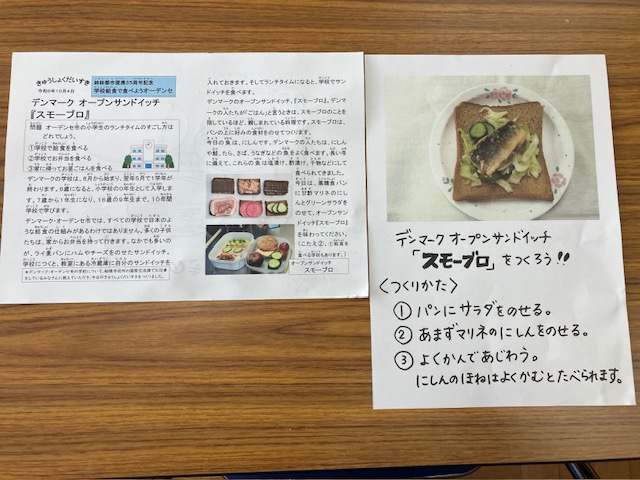 きゅうしょくだいすき
令和6年10月4日
姉妹都市提携35周年記念
学校給食で食べようオーデンセ
デンマーク オープンサンドイッチ
『スモーブロ』
問題 オーデンセ市の小学生のランチタイムのすごし方は
どれでしょう。
①学校で給食を食べる
②学校でお弁当を食べる
③家に帰ってお昼ごはんを食べる
デンマークの学校は、8月から始まり、翌年5月で1学年が
終わります。6歳になると、小学校の0年生として入学しま
す。7歳から1年生になり、16歳の9年生まで、10年間
学校で学びます。
デンマーク・オーデンセ市では、すべての学校で日本のよ
うな給食の仕組みがあるわけではありません。多くの子供
たちは、家からお弁当を持って行きます。なかでも多いの
が、ライ麦パンにハムやチーズをのせたサンドイッチ。
学校につくと、教室にある冷蔵庫に自分のサンドイッチを
入れておきます。そしてランチタイムになると、学校でサン
ドイッチを食べます。
デンマークのオープンサンドイッチ、『スモーブロ』。デンマ
ークの人たちが「ごはん」と言うときは、スモーブロのことを
指しているほど、親しまれている料理です。スモーブロは、
パンの上に好みの食材をのせてつくります。
今日の魚は、にしんです。デンマークの人たちは、にしん
や鮭、たら、さば、うなぎなどの魚をよく食べます。長い冬
に備えて、これらの魚は塩漬け、酢漬け、干物などにして
食べられてきました。
今日は、黒糖食パン
に甘酢マリネのにし
んとグリーンサラダを
のせて、オープンサン
ドイッチ『スモーブロ』
を味わってください。
(こたえ②、①給食を
食べる学校もあります。)
オープンサンドイッチ
スモーブロ
デンマーク オープンサンドイッチ
「スモーブロ」をつくろう!!
〈つくりかた〉
① パンにサラダをのせる。
② あまずマリネのにしんをのせる。
③ よくかんであじわう。
にしんのほねはよくかむとたべられます。